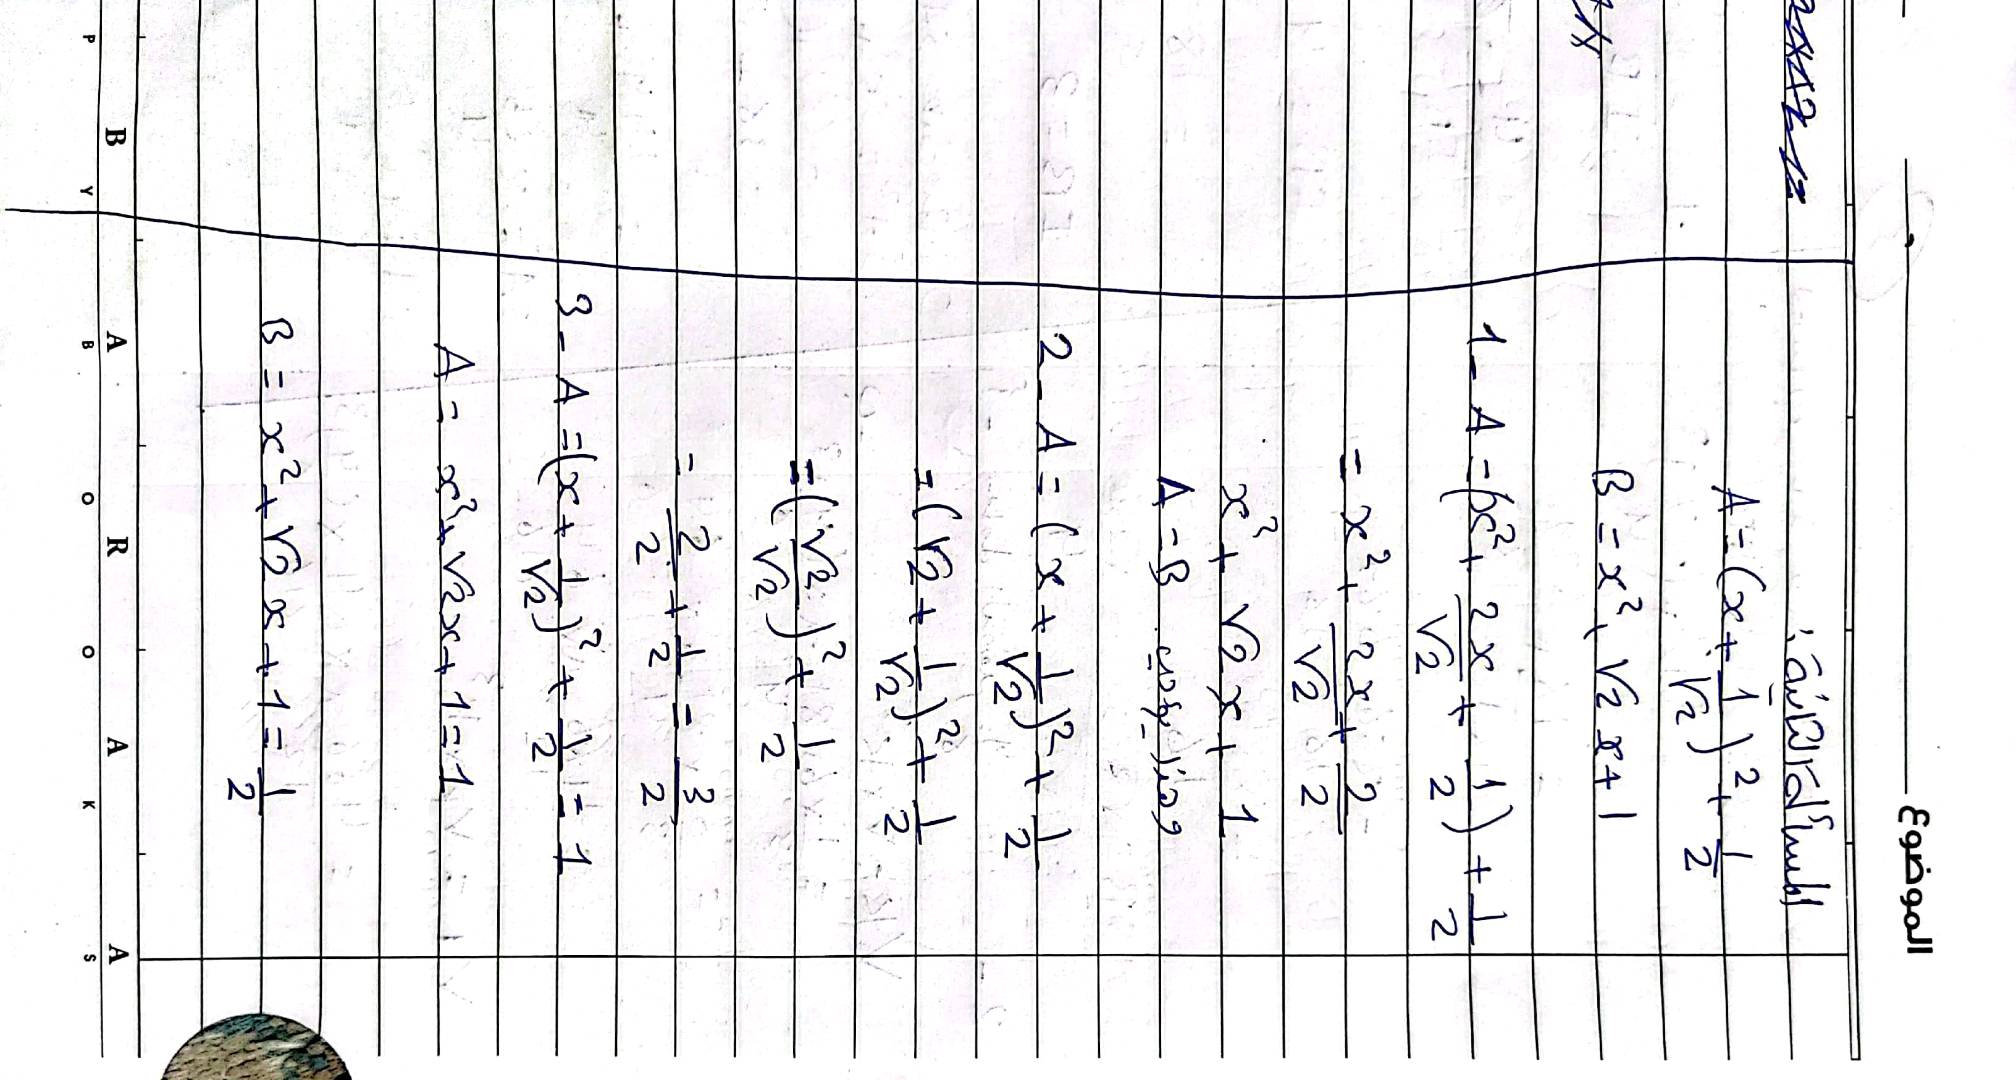 الموضوع
المسألة الثانية:
A = (x + 1/√2)² + 1/2
B = x² + √2 x + 1
1 - A = (x² + 2x/√2 + 1/2) + 1/2
= x² + 2x/√2 + 2/2
x² + √2 x + 1
A = B
2 - A = (x + 1/√2)² + 1/2
= (√2 + 1/√2)² + 1/2
= (√2/√2)² + 1/2
= 2/2 + 1/2 = 3/2
3 - A = (x + 1/√2)² + 1/2 = 1
A = x² + √2x + 1 = 1
B = x² + √2 x + 1 = 1/2
BARAKA
BY BOOKS